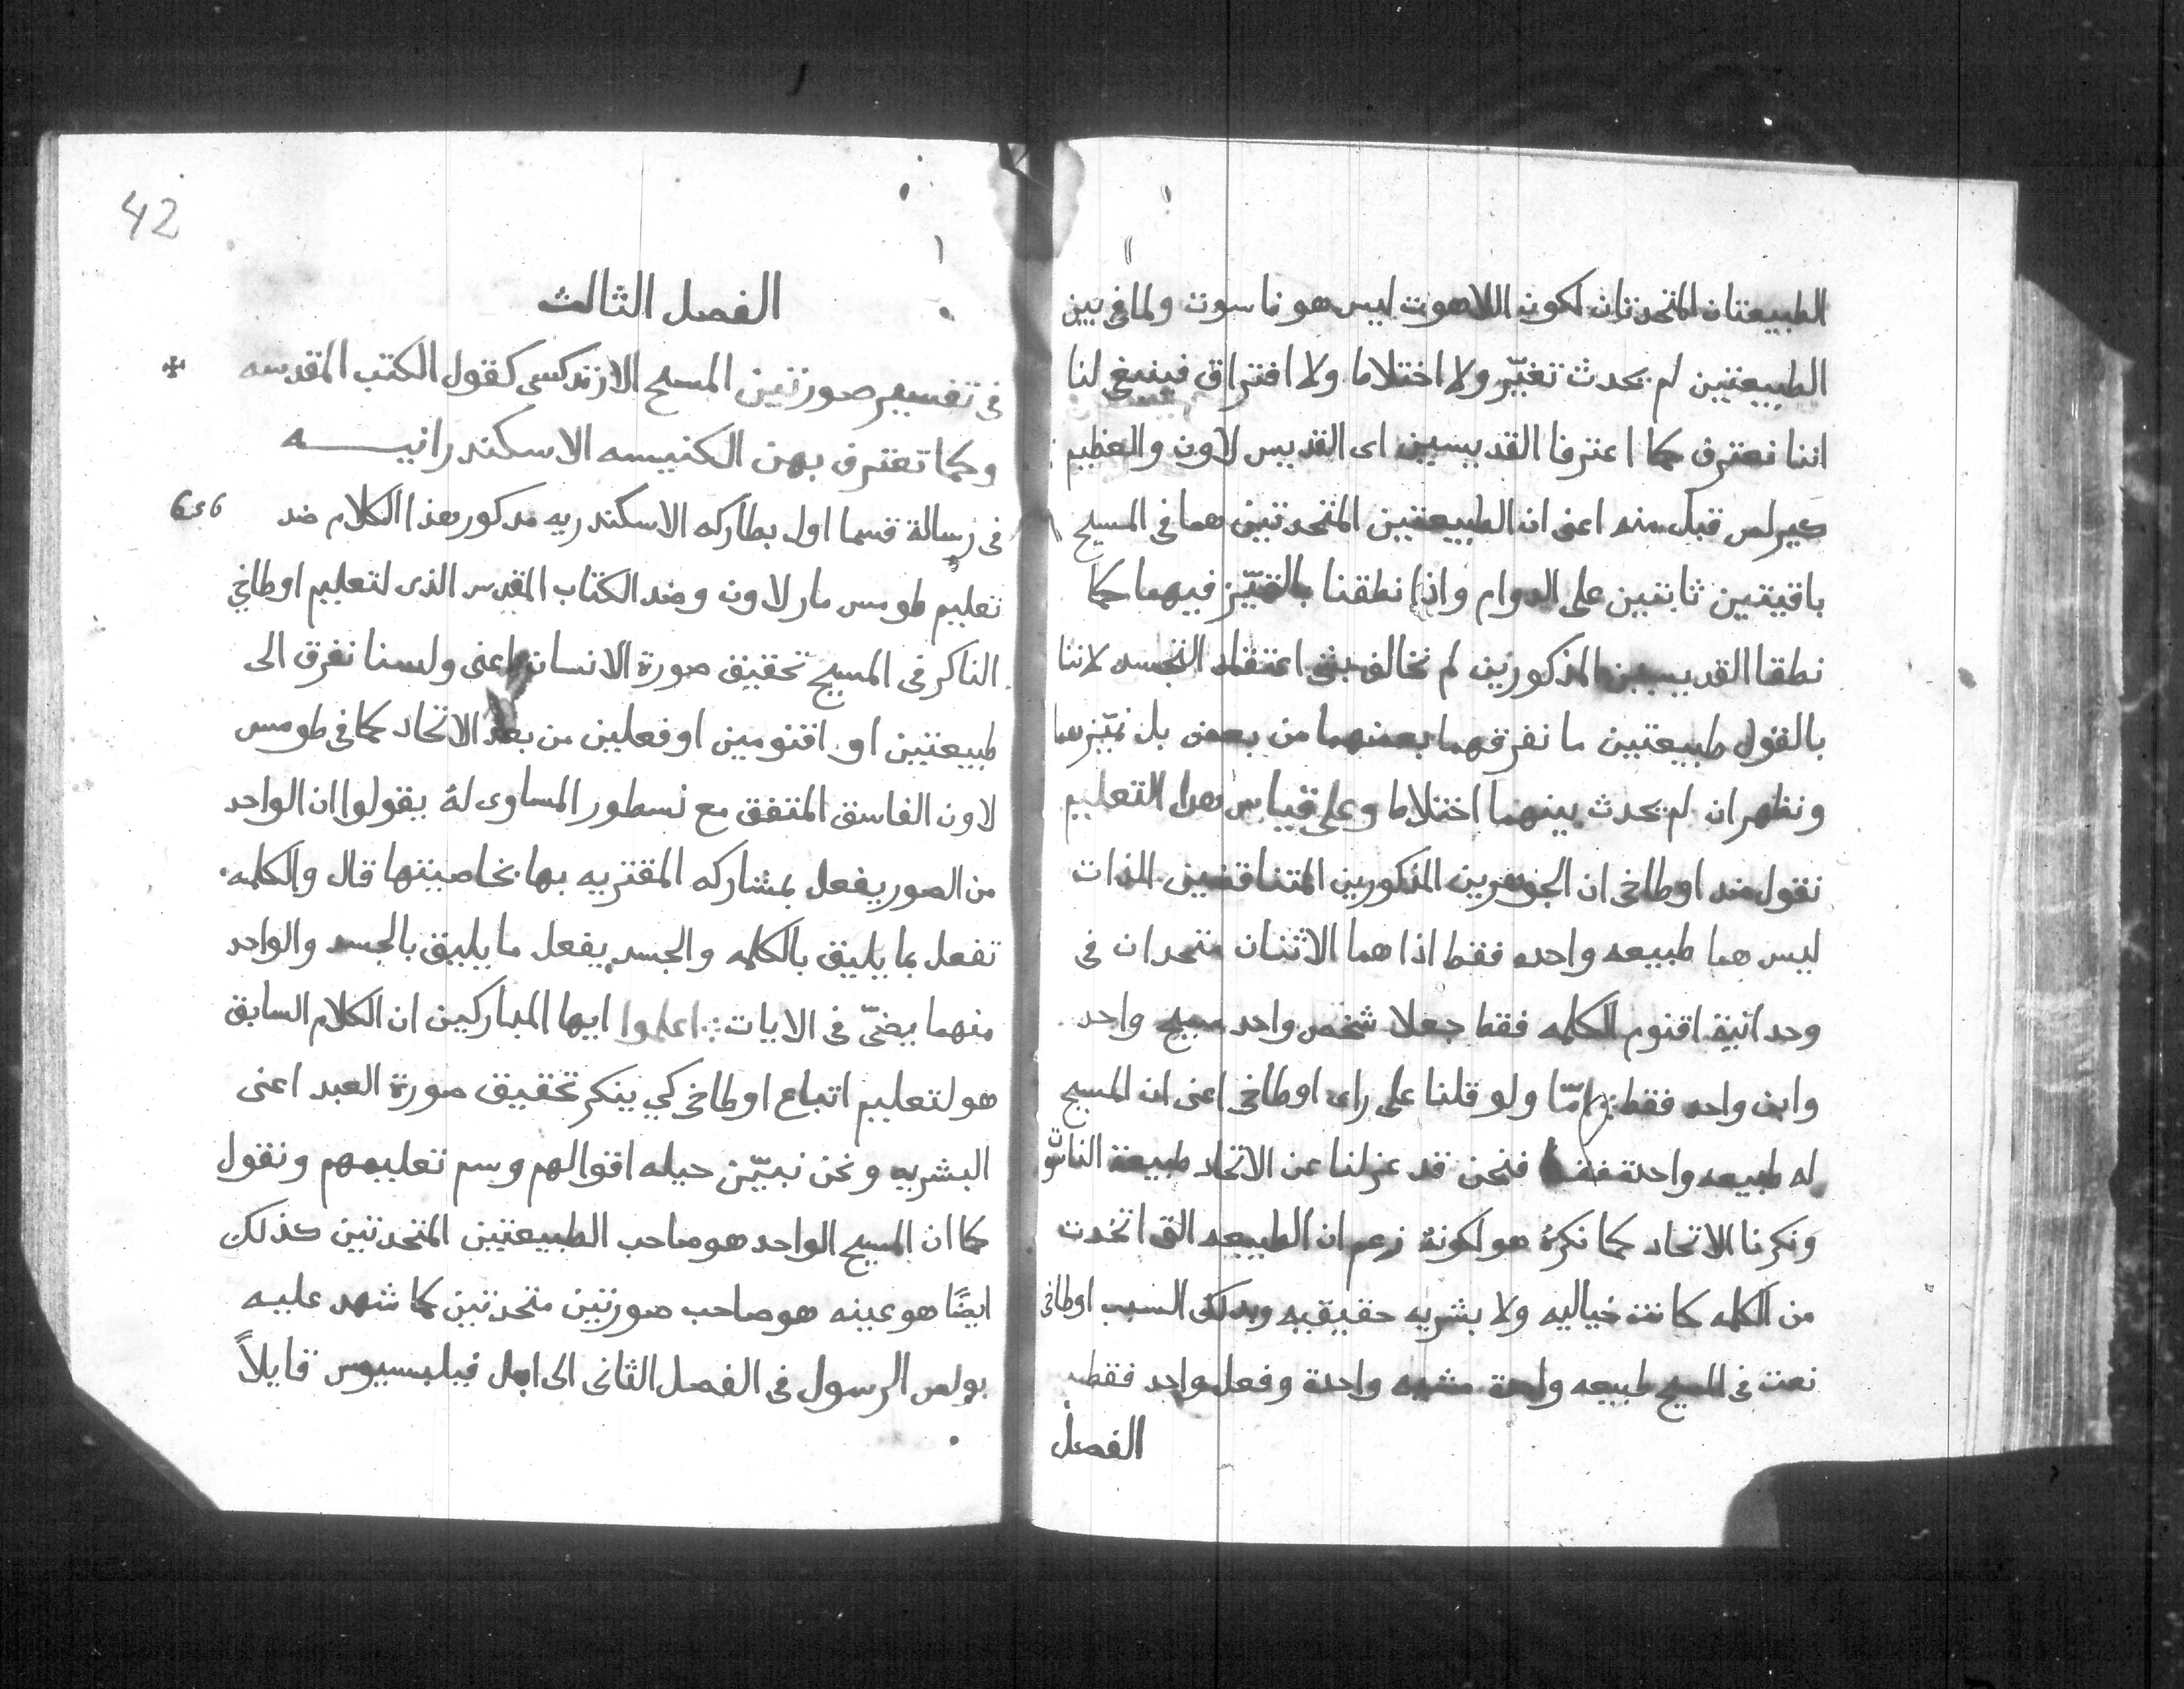 الطبيعتان المتحدتان لكون اللاهوت ليس هو ناسوت ولما في بين
الطبيعتين لم يحدث تغيّر ولا اختلاط ولا افتراق فينبغي لنا
اننا نعترف كما اعترفا القديسين اى القديس لاون والعظيم
كيرلص قبل منه اعنى ان الطبيعتين المتحدتين هما فى المسيح
باقيتين ثابتين على الدوام واذا نطقنا بالتميّز فيهما كما
نطقا القديسين المذكورين لم نخالف بشى اعتقاد التجسد لاننا
بالقول طبيعتين ما نفرقهما بعضهما من بعض بل نميّزهما
ونظهر ان لم يحدث بينهما اختلاط وعلى قياس هدا التعليم
نقول ضد اوطاخى ان الجوهرين المذكورين المتناقضين الذات
ليس هما طبيعه واحده فقط اذا هما الاثنان متحدان فى
وحدانية اقنوم الكلمه فقط جعلا شخص واحد مسيح واحد
وابن واحد فقط امّا ولو قلنا على راى اوطاخى اعنى ان المسيح
له طبيعه واحدة فقط فنحن قد عزلنا عن الاتحاد طبيعة الناسوت
ونكرنا الاتحاد كما نكرهٔ هو لكونهٔ زعم ان الطبيعه التى اتخدت
من الكلمه كانت خياليه ولا بشريه حقيقيه وبدلك السبب اوطاخى
نعت فى المسيح طبيعه واحدة مشيه واحدة وفعل واحد فقط
الفصل
42
الفصل الثالث
فى تفسير صورتين المسيح الارتدكسى كقول الكتب المقدسه
وكما تعترف بهن الكنيسه الاسكندرانيه
فى رسالة قسما اول بطاركه الاسكندريه مدكور هذا الكلام ضد
تعليم طومس مار لاون وضد الكتاب المقدس الذى لتعليم اوطاخي
الناكر فى المسيح تحقيق صورة الانسان اعنى ولسنا نفرق الى
طبيعتين او اقنومين او فعلين من بعد الاتحاد كما فى طومس
لاون الفاسق المتفق مع نسطور المساوى لهٔ بقولوا ان الواحد
من الصور يفعل بمشاركه المقتريه بها بخاصيتها قال والكلمه
تفعل بما يليق بالكلمه والجسد يفعل ما يليق بالجسد والواحد
منهما يضىّ فى الايات اعلموا ايها المباركين ان الكلام السابق
هو لتعليم اتباع اوطاخى كي ينكر تحقيق صورة العبد اعنى
البشريه ونحن نبيّن حيله اقوالهم وسم تعليمهم ونقول
كما ان المسيح الواحد هو صاحب الطبيعتين المتحدتين كذلك
ايضًا هو عينه هو صاحب صورتين متحدتين كما شهد عليه
بولص الرسول فى الفصل الثانى الى اهل فيلبسيوس قايلاً